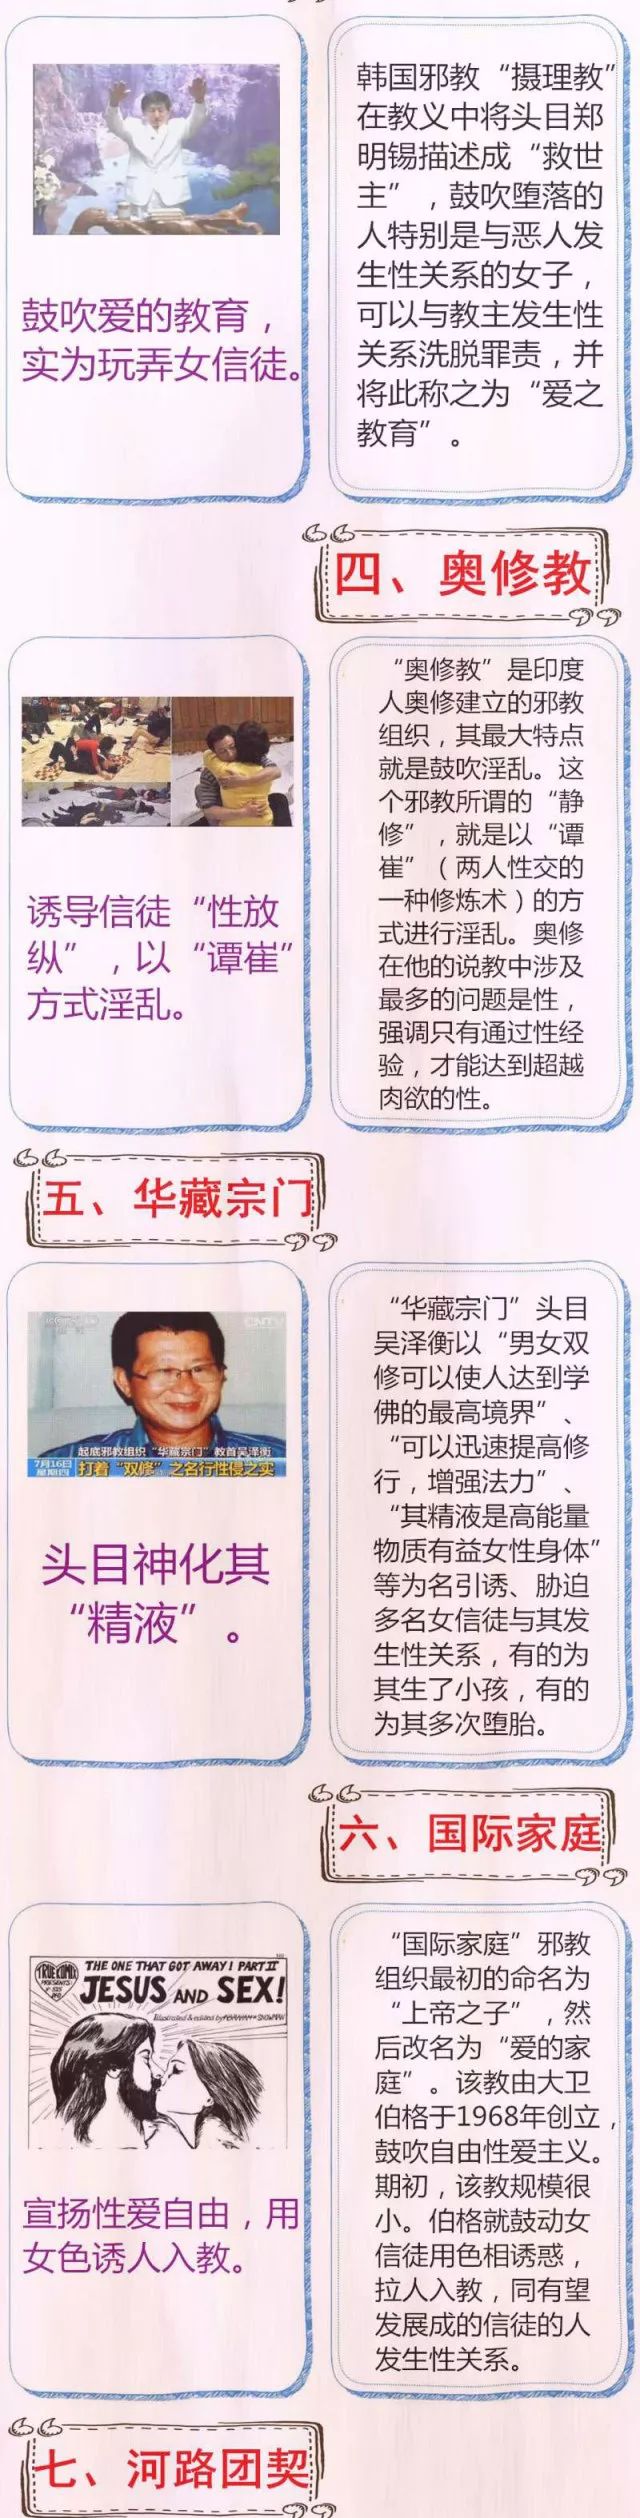 鼓吹爱的教育，
实为玩弄女信徒。
韩国邪教“摄理教”
在教义中将头目郑
明锡描述成“救世
主”，鼓吹堕落的
人特别是与恶人发
生性关系的女子，
可以与教主发生性
关系洗脱罪责，并
将此称之为“爱之
教育”。
四、奥修教
诱导信徒“性放
纵”，以“谭崔”
方式淫乱。
“奥修教”是印度
人奥修建立的邪教
组织，其最大特点
就是鼓吹淫乱。这
个邪教所谓的“静
修”，就是以“谭
崔”（两人性交的
一种修炼术）的方
式进行淫乱。奥修
在他的说教中涉及
最多的问题是性，
强调只有通过性经
验，才能达到超越
肉欲的性。
五、华藏宗门
CNTV
起底邪教组织“华藏宗门”教首吴泽衡
7月16日
星期四
打着“双修”之名行性侵之实
头目神化其
“精液”。
“华藏宗门”头目
吴泽衡以“男女双
修可以使人达到学
佛的最高境界”、
“可以迅速提高修
行，增强法力”、
“其精液是高能量
物质有益女性身体”
等为名引诱、胁迫
多名女信徒与其发
生性关系，有的为
其生了小孩，有的
为其多次堕胎。
六、国际家庭
TRUE KOMIX
PRESENTS:
THE ONE THAT GOT AWAY! PART II
JESUS AND SEX!
Illustrated & edited by
宣扬性爱自由，用
女色诱人入教。
“国际家庭”邪教
组织最初的命名为
“上帝之子”，然
后改名为“爱的家
庭”。该教由大卫
伯格于1968年创立，
鼓吹自由性爱主义。
期初，该教规模很
小。伯格就鼓动女
信徒用色相诱惑，
拉人入教，同有望
发展成的信徒的人
发生性关系。
七、河路团契